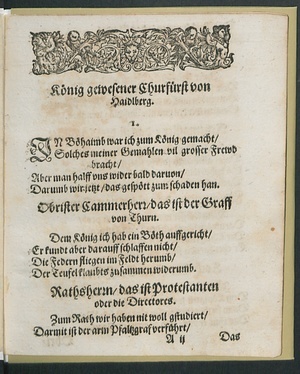 König gewesener Churfürst von
Haidlberg.
1.
IN Böhaimb war ich zum König gemacht/
Solches meiner Gemahlen vil grosser Frewd
bracht/
Aber man halff uns wider bald daruon/
Darumb wir jetzt/das gespött zum schaden han.
Obrister Cammerherr/das ist der Graff
von Thurn.
Dem König ich hab ein Böth auffgericht/
Er kundt aber darauff schlaffen nicht/
Die Federn fliegen im Feldt herumb/
Der Teufel klaubts zusammen widerumb.
Rathsherrn/das ist Protestanten
oder die Directores.
Zum Rath wir haben nit woll gstudiert/
Darmit ist der arm Pfaltzgraf verführt/
A ij Das